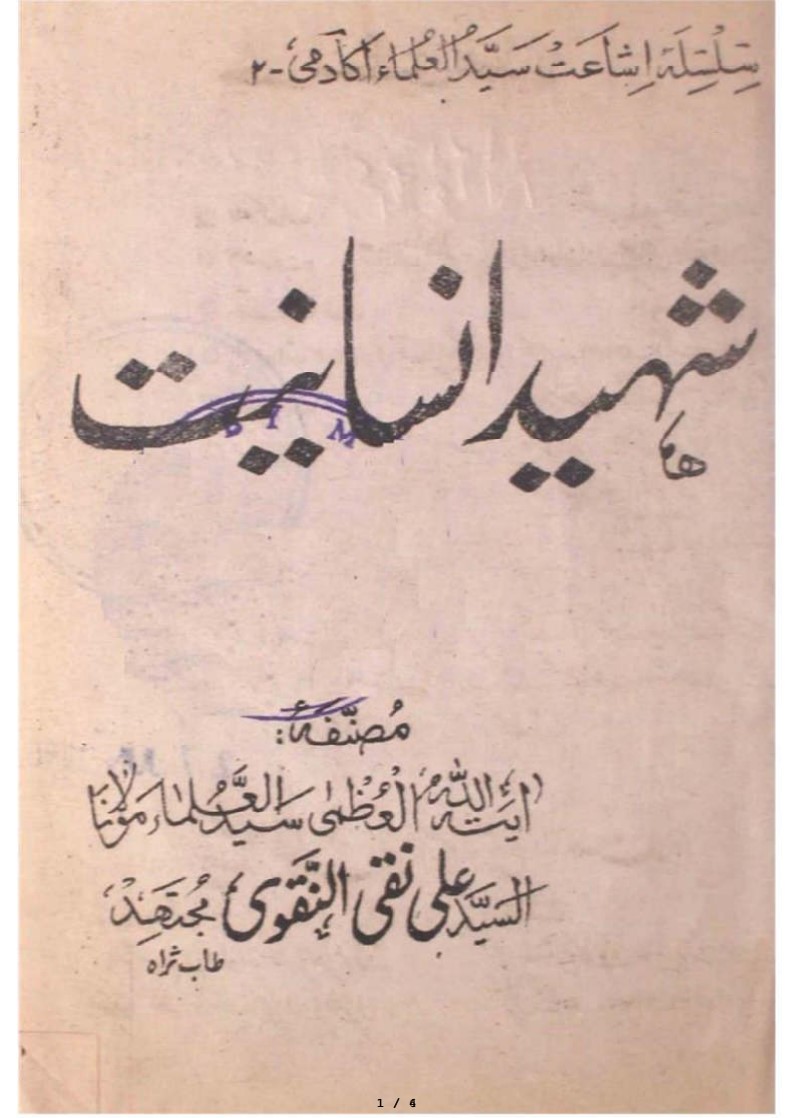 سِلْسِلَۂ اِشاعَتْ سَیَّدُ العُلَماء اکادَمی۔۲
شہید انسانیت
مُصَنَّفَۂ:
آیَتہ اللّٰہُ العُظْمٰی سَیَّدُ العُلَماء مَوْلَانَا
السیَّد علی نقی النَّقَوی مُجتَھِدْ
طاب ثراہ
1 / 4